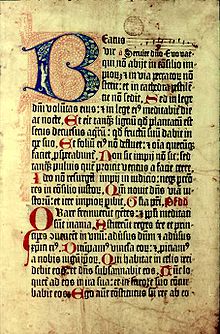 Beatus
vir Seruite dn̄o Euouae
qui nō abijt in cōsilio im
pioꝝ et in via pctōꝝ nō
stetit: et in cathedra pestilē
cie nō sedit. Sed in lege
dn̄i volūtas eius: et in lege eiꝰ meditabit̄ die
ac nocte. Et erit tanq̄ lignū qd̄ plātatū est
secus decursus aq̄ꝝ: qd̄ fructū suū dabit in
tpe suo. Et foliū eiꝰ nō defluet: et oīa quecūqꝫ
faciet, prosperabūt̄. Non sic impij nō sic: sed
tanq̄ puluis quē proicit ventus a facie terre.
Ideo nō resurgūt impij in iudicio: neqꝫ pctōres
in cōsilio iustoꝝ. Qm̄ nouit dn̄s viā iu
stoꝝ: et iter impioꝝ ꝑibit. Gl̄a pr̄i.
Quare fremuerūt gētes: et ppl̄i meditati
sunt inania. Astiterūt reges tre et prin
cipes cōuenerūt in vnū: aduūsus dn̄m et aduūsus
xp̄m eiꝰ. Dirūpamꝰ vincl̄a eoꝝ: et proiciamꝰ
a nobis iugū ipoꝝ. Qui habitat in celis irri
debit eos: et dn̄s subsannabit eos. Tūc lo
quet̄ ad eos in ira sua: et in furore suo cōtur
babit eos. Ego aūt cōstitutus sū rex ab eo